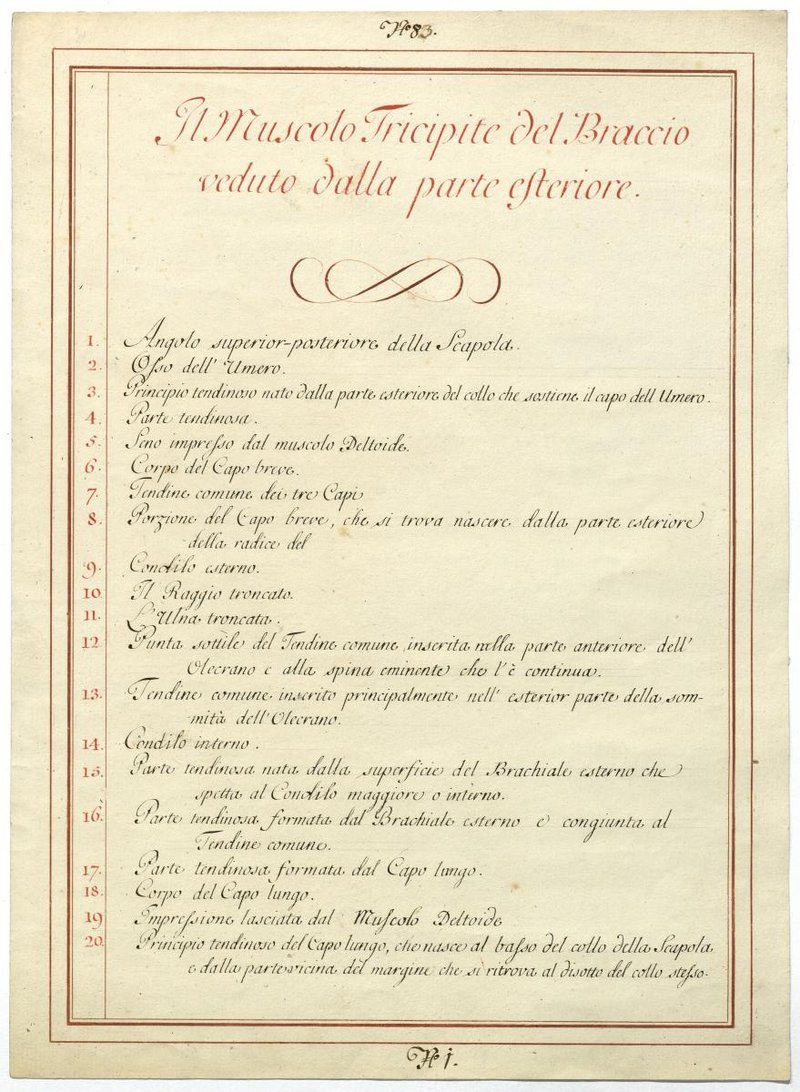 No 83.
Il Muscolo Tricipite del Braccio
veduto dalla parte esteriore.
1. Angolo superior-posteriore della Scapola.
2. Osso dell' Umero.
3. Principio tendinoso nato dalla parte esteriore del collo che sostiene il capo dell Umero.
4. Parte tendinosa.
5. Seno impresso dal muscolo Deltoide.
6. Corpo del Capo breve.
7. Tendine comune dei tre Capi
8. Porzione del Capo breve, che si trova nascere dalla parte esteriore
della radice del
9. Condilo esterno.
10. Il Raggio troncato.
11. L'Ulna troncata.
12 Punta sottile del Tendine comune inserita nella parte anteriore dell'
Olecrano e alla spina eminente che l'è continua.
13. Tendine comune inserito principalmente nell' esterior parte della som-
mità dell'Olecrano.
14. Condilo interno.
15. Parte tendinosa nata dalla superficie del Brachiale esterno che
spetta al Condilo maggiore o interno.
16. Parte tendinosa formata dal Brachiale esterno e congiunta al
Tendine comune.
17. Parte tendinosa formata dal Capo lungo.
18. Corpo del Capo lungo.
19 Impressione lasciata dal Muscolo Deltoide
20. Principio tendinoso del Capo lungo, che nasce al basso del collo della Scapola
e dalla parte vicina del margine che si ritrova al disotto del collo stesso.
No 1.